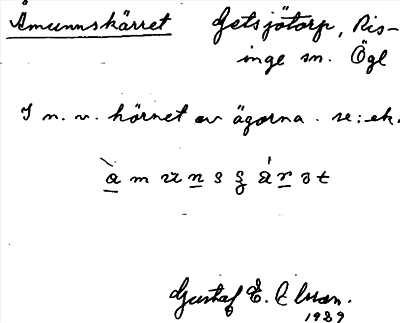 Åmunnskärret Getsjötorp, Ris-
inge sn. Ögl
I n. v. hörnet av ägorna. se: ek.
Gustaf E. Olsson.
1929